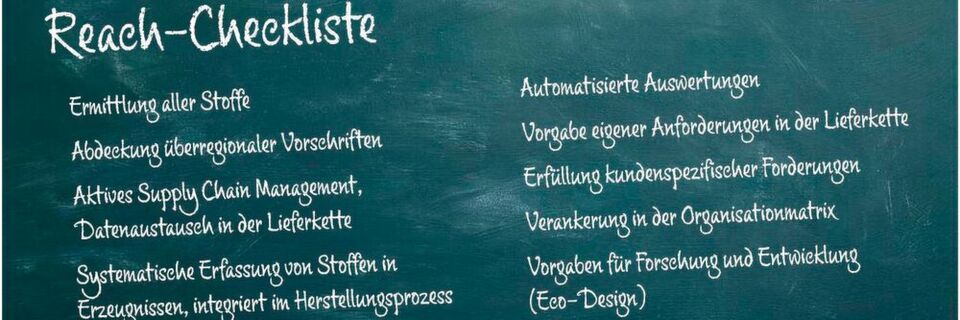 Reach-Checkliste
Ermittlung aller Stoffe
Abdeckung überregionaler Vorschriften
Aktives Supply Chain Management,
Datenaustausch in der Lieferkette
Systematische Erfassung von Stoffen in
Erzeugnissen, integriert im Herstellungsprozess
Automatisierte Auswertungen
Vorgabe eigener Anforderungen in der Lieferkette
Erfüllung kundenspezifischer Forderungen
Verankerung in der Organisationmatrix
Vorgaben für Forschung und Entwicklung
(Eco-Design)